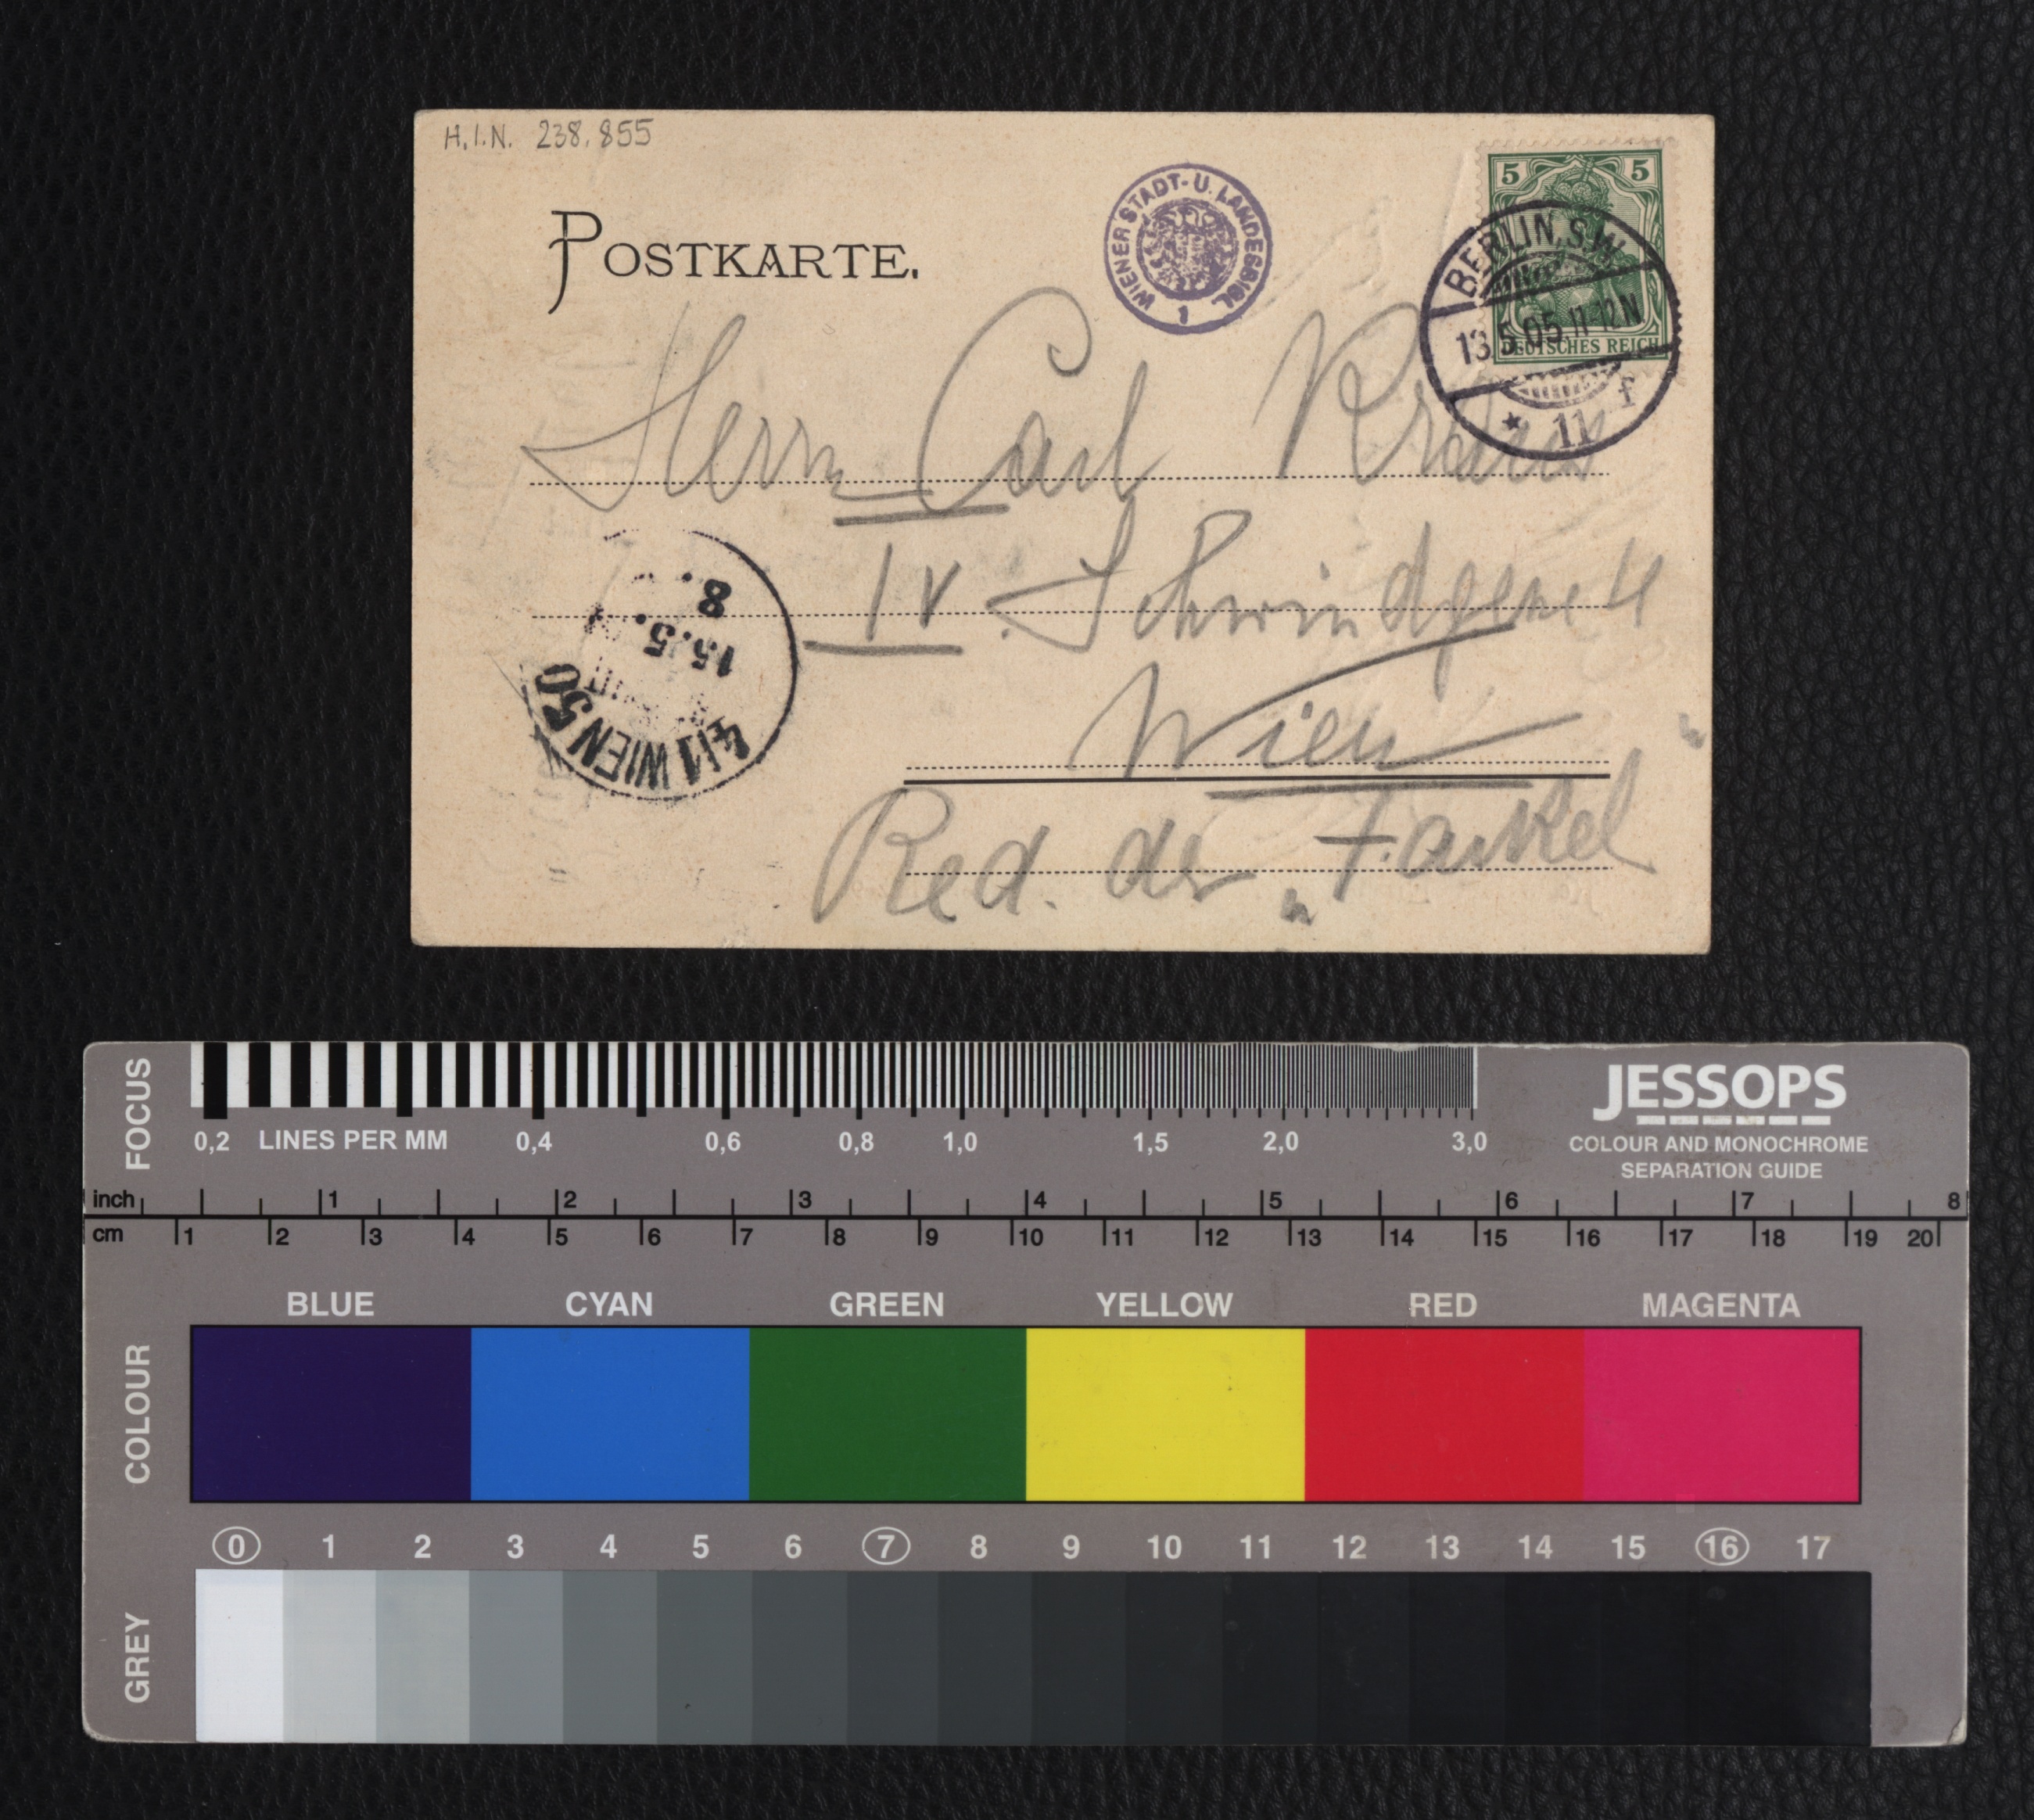 H.I.N. 238.855
POSTKARTE.
WIENER STADT- U. LANDESBIBL.
1
5 5
DEUTSCHES REICH
BERLIN, S.W.
13.5.05.11-12N
* 11 f
Herrn Carl Kraus
IV. Schwindgasse 4
Wien
Red. der „Fackel"
8.
15.5.
4/1 WIEN 50
FOCUS
0,2 LINES PER MM 0,4 0,6 0,8 1,0 1,5 2,0 3,0
JESSOPS
COLOUR AND MONOCHROME
SEPARATION GUIDE
inch 1 2 3 4 5 6 7 8
cm 1 2 3 4 5 6 7 8 9 10 11 12 13 14 15 16 17 18 19 20
BLUE CYAN GREEN YELLOW RED MAGENTA
COLOUR
0 1 2 3 4 5 6 7 8 9 10 11 12 13 14 15 16 17
GREY